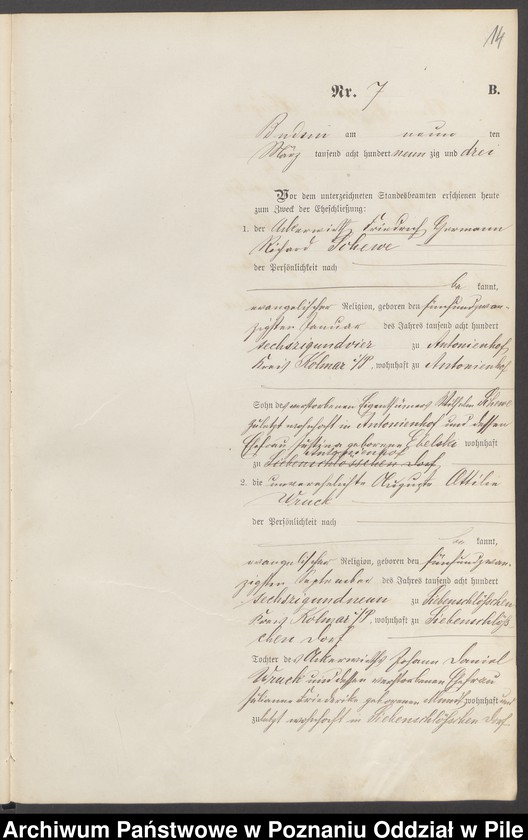 14
Nr. 7 B.
Budsin am neun ten
März tausend acht hundert neun zig und drei
Vor dem unterzeichneten Standesbeamten erschienen heute
zum Zweck der Eheschließung:
1. der Ackerwirth Friedrich Hermann
Richard Schewe
der Persönlichkeit nach
be kannt,
evangelischer Religion, geboren den fünfundzwan-
zigsten Januar des Jahres tausend acht hundert
sechszigundvier zu Antonienhof
Kreis Kolmar i/P, wohnhaft zu Antonienhof
Sohn des verstorbenen Eigenthümers Wilhelm Schewe
zuletzt wohnhaft in Antonienhof und dessen
Ehefrau Justina geborene wohnhaft
Antonienhof
zu Siebenschlösschen Dorf
2. die unverehelichte Auguste Ottilie
Wruck
der Persönlichkeit nach
be kannt,
evangelischer Religion, geboren den fünfundzwan-
zigsten September des Jahres tausend acht hundert
sechszigundneun zu Siebenschlösschen
Kreis Kolmar i/P, wohnhaft zu Siebenschlöss
chen Dorf
Tochter des Ackerwirths Johann Daniel
Wruck und dessen verstorbenen Ehefrau
Friederike geborenen wohnhaft und
zuletzt wohnhaft in Siebenschlösschen Dorf
Archiwum Państwowe w Poznaniu Oddział w Pile